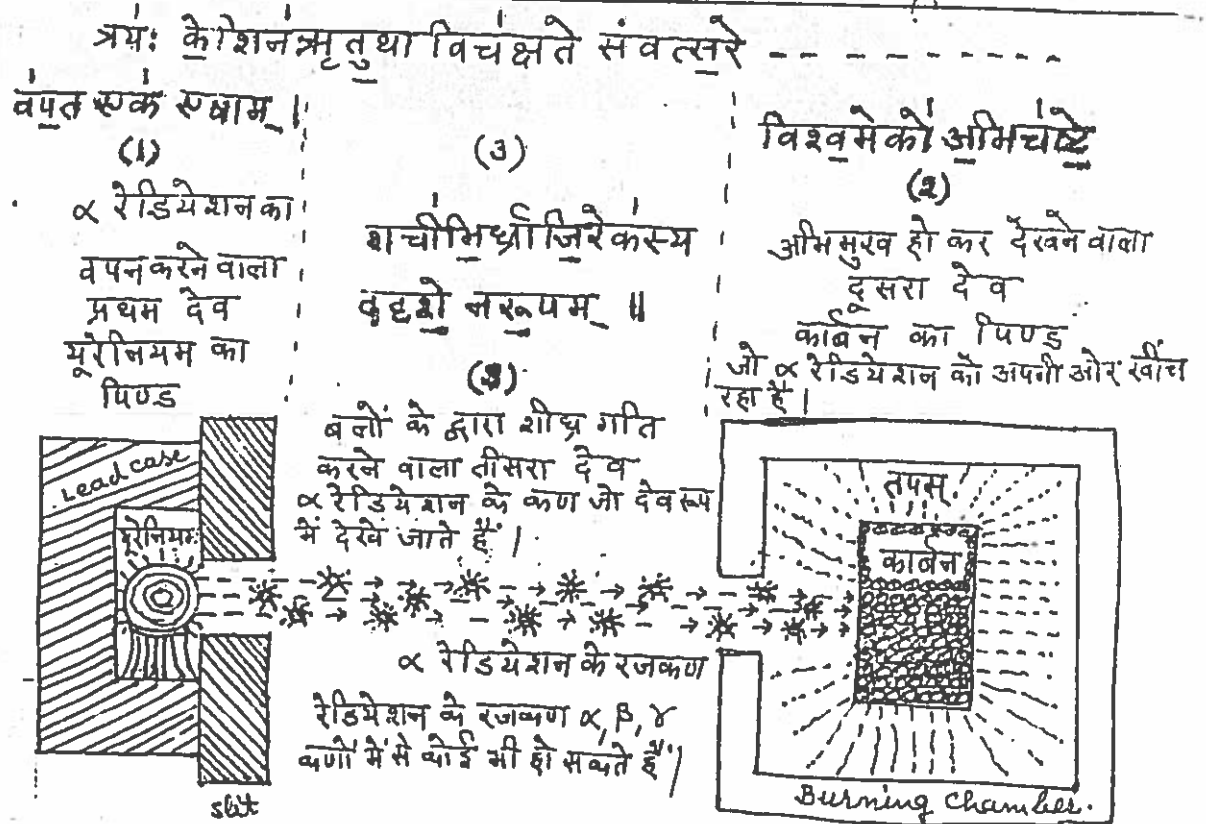 त्रयः॑ के॒शिन॑ ऋतु॒था विच॑क्षते संवत्स॒रे
व॑प॒त एक॑ एषाम् ।
(1)
α रेडियेशन का
वपन करने वाला
प्रथम देव
यूरेनियम का
पिण्ड
(3)
शची॑भि॒र्ध्राजि॒रेक॑स्य
ददृशे॒ न रू॒पम् ॥
(3)
बलों के द्वारा शीघ्र गति
करने वाला तीसरा देव
α रेडियेशन के कण जो देव रूप
में देखे जाते हैं ।
विश्व॒मेको॑ अ॒भिच॑ष्टे॒
(2)
अभिमुख हो कर देखने वाला
दूसरा देव
कार्बन का पिण्ड
जो α रेडियेशन को अपनी ओर खींच
रहा है ।
Lead case
यूरेनियम
slit
α रेडियेशन के रजकण
रेडियेशन के रजकण α, β, γ
कणों में से कोई भी हो सकते हैं ।
तपस्
कार्बन
Burning Chamber.